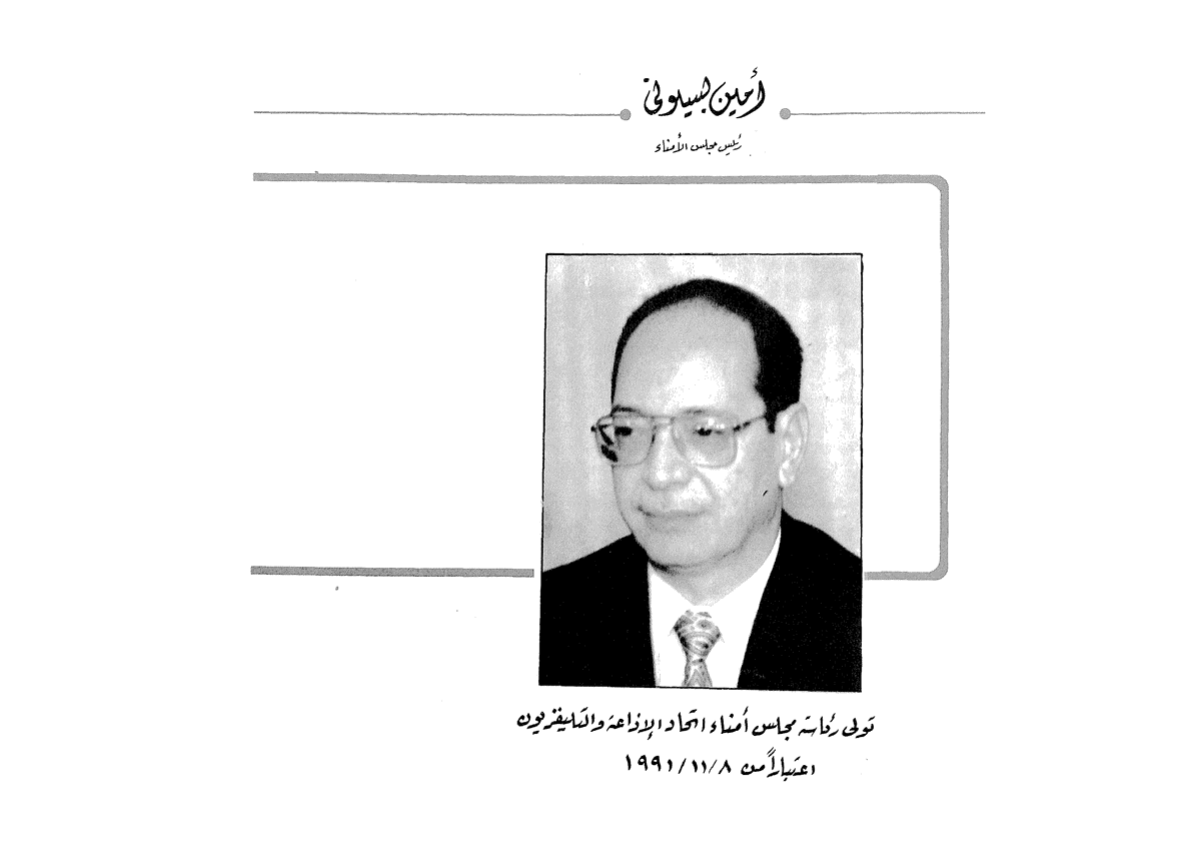 أمين بسيوني
رئيس مجلس الأمناء
تولى رئاسة مجلس أمناء اتحاد الإذاعة والتليفزيون
اعتباراً من ٨/١١/١٩٩١